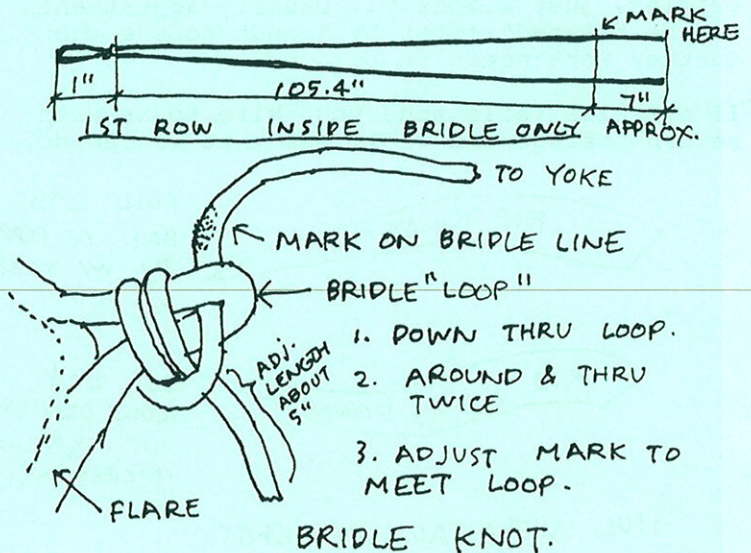 MARK
HERE
1"
105.4"
7"
1ST ROW INSIDE BRIDLE ONLY APPROX.
TO YOKE
MARK ON BRIDLE LINE
BRIDLE "LOOP"
ADJ.
LENGTH
ABOUT
5"
1. DOWN THRU LOOP.
2. AROUND & THRU
TWICE
3. ADJUST MARK TO
MEET LOOP.
FLARE
BRIDLE KNOT.